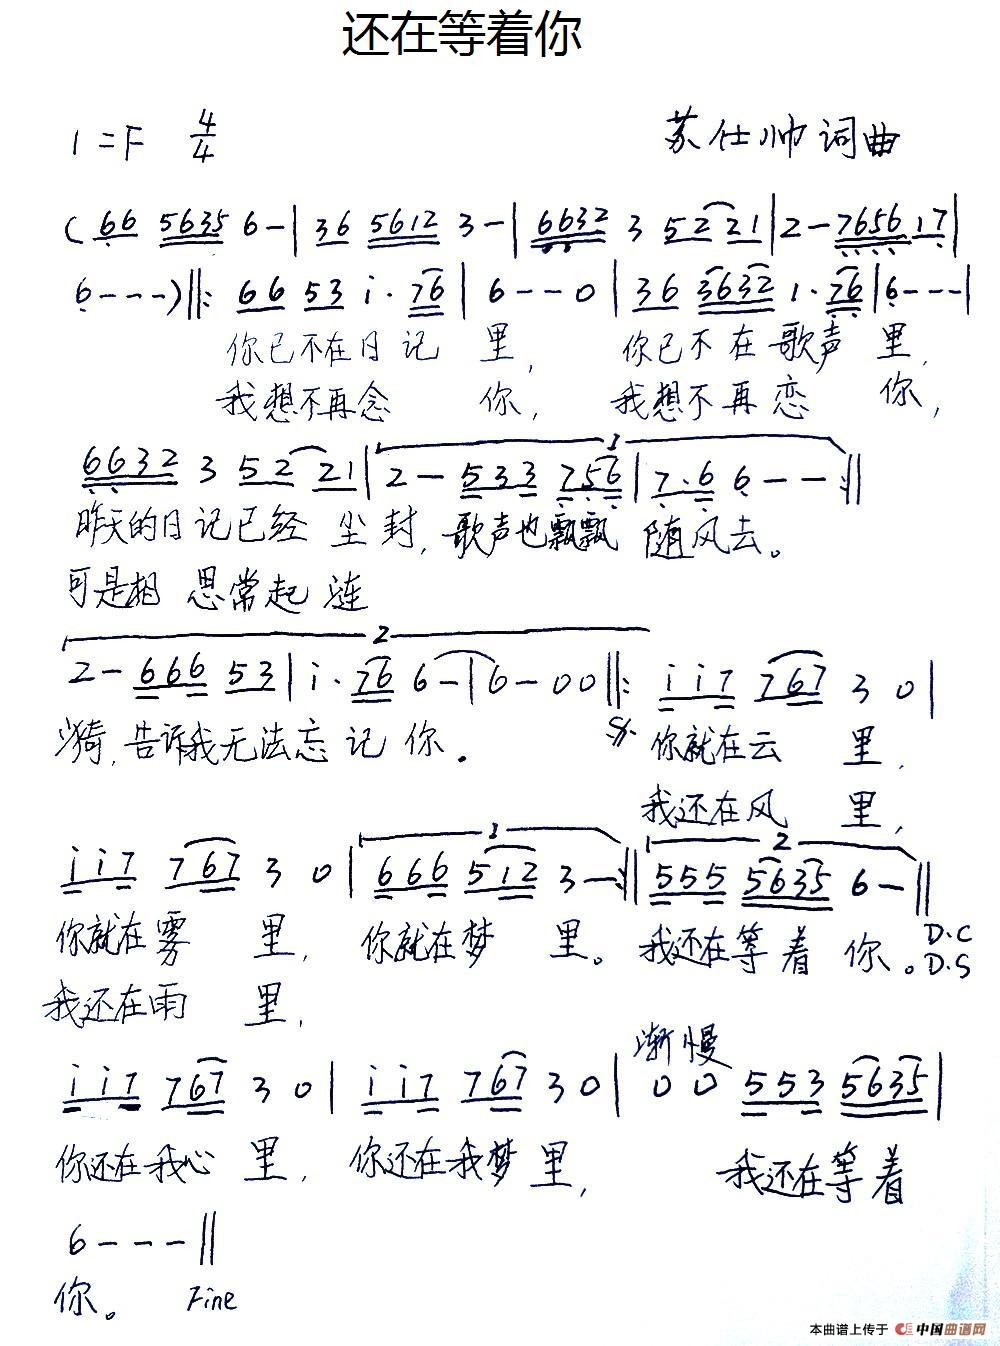 还在等着你
1=F 4/4 苏仕帅词曲
( 66 5635 6 - | 36 5612 3 - | 6632 3 52 21 | 2 - 7656 17 |
6 - - - ) ‖: 66 53 i · 76 | 6 - - 0 | 36 3632 1 · 76 | 6 - - - |
你已不在日记 里, 你已不在歌声 里,
我想不再念 你, 我想不再恋 你,
1
6632 3 52 21 | 2 - 533 756 | 7 · 6 6 - - :‖
昨天的日记已经 尘封, 歌声也飘飘 随风去。
可是相 思常起涟
2
2 - 666 53 | i · 76 6 - | 6 - 00 ‖: i i 7 767 3 0 |
漪, 告诉我无法忘记 你。 你就在云 里,
我还在风 里,
1 2
i i 7 767 3 0 | 666 512 3 - :‖ 555 5635 6 - ‖
你就在雾 里, 你就在梦 里。 我还在等着 你。 D.C
D.S
我还在雨 里,
渐慢
i i 7 767 3 0 | i i 7 767 3 0 | 0 0 553 5635 |
你还在我心 里, 你还在我梦里, 我还在等着
6 - - - ‖
你。 Fine
本曲谱上传于 中国曲谱网